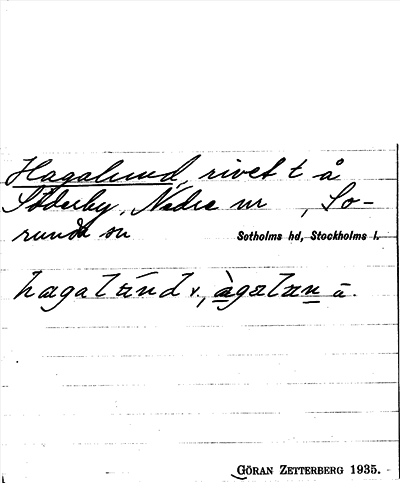 Hagalund, rivet t å
Söderby, Nedre nr , So-
runda sn Sotholms hd, Stockholms l.
hagalund v., àgalan ā.
GÖRAN ZETTERBERG 1935.